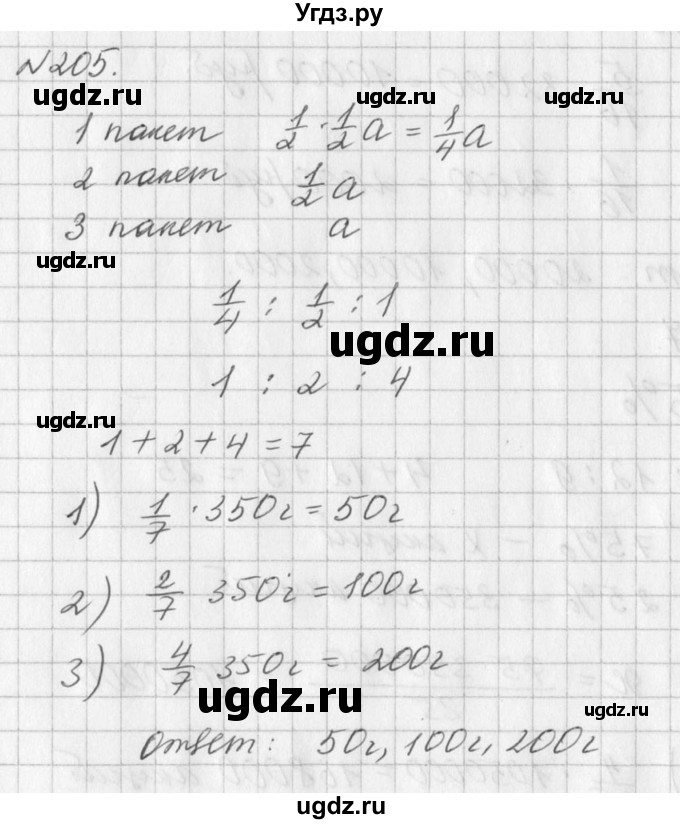 Угдз.ру
№205.
ugdz.ru ugdz.ru
1 пакет 1/2 · 1/2 a = 1/4 a
2 пакет 1/2 a
3 пакет a
ugdz.ru
1/4 : 1/2 : 1
ugdz.ru
1 : 2 : 4
ugdz.ru
1+2+4=7
1) 1/7 · 350г = 50г
ugdz.ru
2) 2/7 350г = 100г
3) 4/7 350г = 200г
ugdz.ru ugdz.ru
Ответ: 50г, 100г, 200г
ugdz.ru